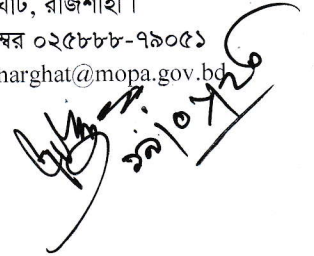 ঘাট, রাজশাহী।
ম্বর ০২৫৮৮৮-৭৯০৫১
harghat@mopa.gov.bd